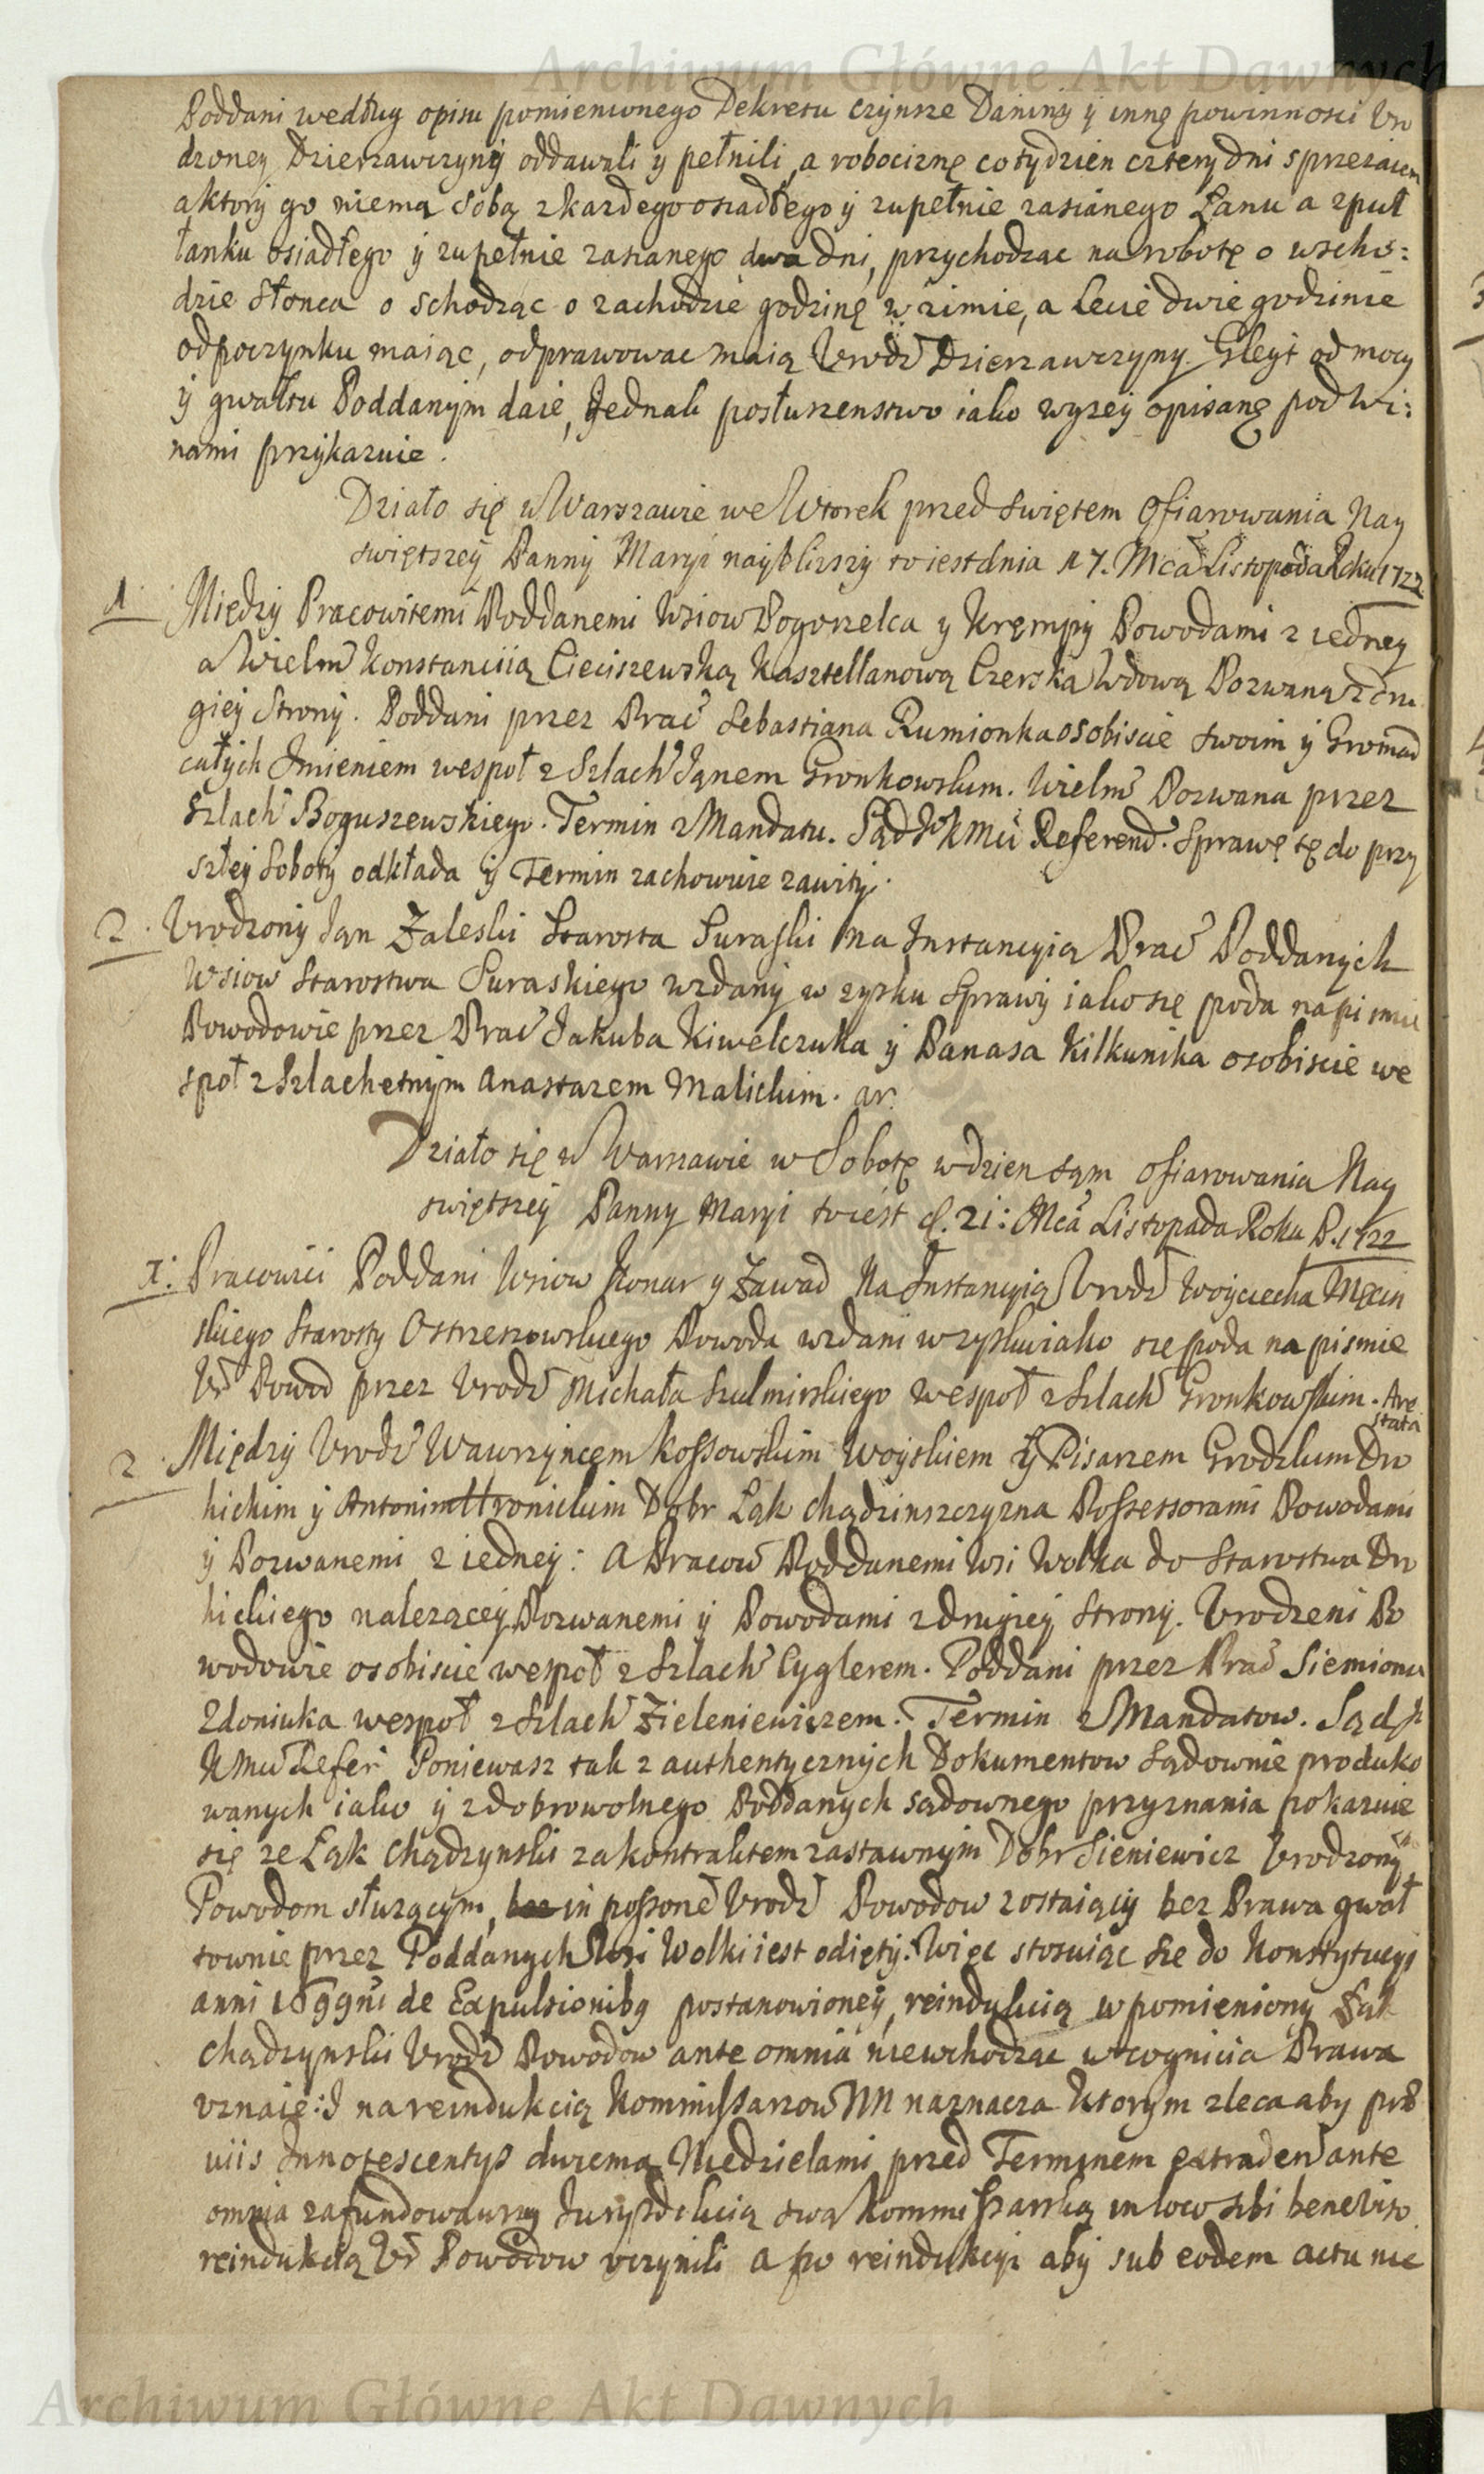 Archiwum Główne Akt Dawnych
Poddani według opisu pomienionego Dekretu czynsze Daniny y innę powinnosci Vro
dzoney Dzierzawczyny oddawali y pełnili, a robociznę co tydzien cztery dni sprzezaiem
a ktory go niema sobą z kazdego osiadłego y zupełnie zasianego Łanu a z puł
łanku osiadłego y zupełnie zasianego dwa dni, przychodząc na robotę o wscho:
dzie słonca o schodząc o zachodzie godzinę w zimie, a Lecie dwie godzinie
odpoczynku maiąc, odprawowac maią Vrodz Dzierzawczyny. Gleyt od mocy
y gwałtu Poddanym daie, Jednak posłuszenstwo iako wyzey opisanę pod wi:
nami przykazuie.
Działo się w Warszawie we Wtorek przed swiętem Ofiarowania Nay
swiętszey Panny Maryi nayblizszy to iest dnia 17. Mca Listopada Roku 1722
1 Między Pracowitemi Poddanemi Wsiow Pogorzelca y Krępy Powodami z iedney
a Wielm Konstancyią Cieciszewską Kasztellanową Czerska Wdową Pozwaną z dru
giey Strony. Poddani przez Prac Sebastiana Rumionka osobiscie swoim y Gromad
całych Jmieniem wespoł z Szlach Janem Gronkowskim. Wielm Pozwana przez
Szlach Boguszewskiego. Termin z Mandatu. Sąd JKMci Referend. Sprawę tę do przy
szłey Soboty odkłada y Termin zachowuie zawity.
2. Vrodzony Jan Zaleski Starosta Suraski na Jnstancyią Prac Poddanych
Wsiow Starostwa Suraskiego wzdany w zysku Sprawy iako się poda na pismie
Powodowie przez Prac Jakuba Kiwelczuka y Panasa Kilkunika osobiscie we
społ z Szlachetnym Anastazem Malickim. ar.
Działo się w Warszawie w Sobotę w dzien sam Ofiarowania Nay
swiętszey Panny Maryi to iest d. 21: Mca Listopada Roku P. 1722
1: Pracowici Poddani Wsiow Konar y Zawad Na Jnstancyią Vrodz Woyciecha Męcin
skiego Starosty Ostrzeszowskiego Powoda wzdani w zysku iako się poda na pismie
Vr Powod przez Vrodz Michała Szulmirskiego wespoł z Szlach Gronkowskim. Are
stata
2. Między Vrodz Wawrzyncem Kossowskim Woyskiem y Pisarzem Grodzkim Dro
hickim y Antonim Hronickim Dobr Łąk Chądzinszczyzna Possessorami Powodami
y Pozwanemi z iedney: A Pracow Poddanemi Wsi Wolka do Starostwa Dro
hickiego nalezącey Pozwanemi y Powodami z drugiey Strony. Vrodzeni Po
wodowie osobiscie wespoł z Szlach Cyglerem. Poddani przez Prac Siemiona
Zdoniuka wespoł z Szlach Zieleniewiczem. Termin z Mandatow. Sąd J
KMci Refer Poniewasz tak z authentycznych Dokumentow sądownie produko
wanych iako y z dobrowolnego Poddanych sądownego przyznania pokazuie
się ze Łąk Chądzynski za kontraktem zastawnym Dobr Sieniewicz Vrodzony
Powodom słuzącym, in possone Vrodz Powodow zostaiący bez Prawa gwał
townie przez Poddanych Wsi Wolki iest odięty. Więc stosuiąc się do Konstytucyi
anni 1699ni de Expulsionibg postanowioney, reindukcią w pomieniony Łąk
Chądzynski Vrodz Powodow ante omnia niewchodząc w cognicia Prawa
vznaie: J na reindukcią Kommissarzow NN naznacza Ktorym zleca aby prae
viis Jnnotescentys dwiema Niedzielami przed Terminem extraden ante
omnia zafundowawszy Juryzdikcią swą Kommissarską in loco sibi beneviso
reindukcią Vr Powodow vczynili a po reindukcyi aby sub eodem actu nie
Archiwum Główne Akt Dawnych